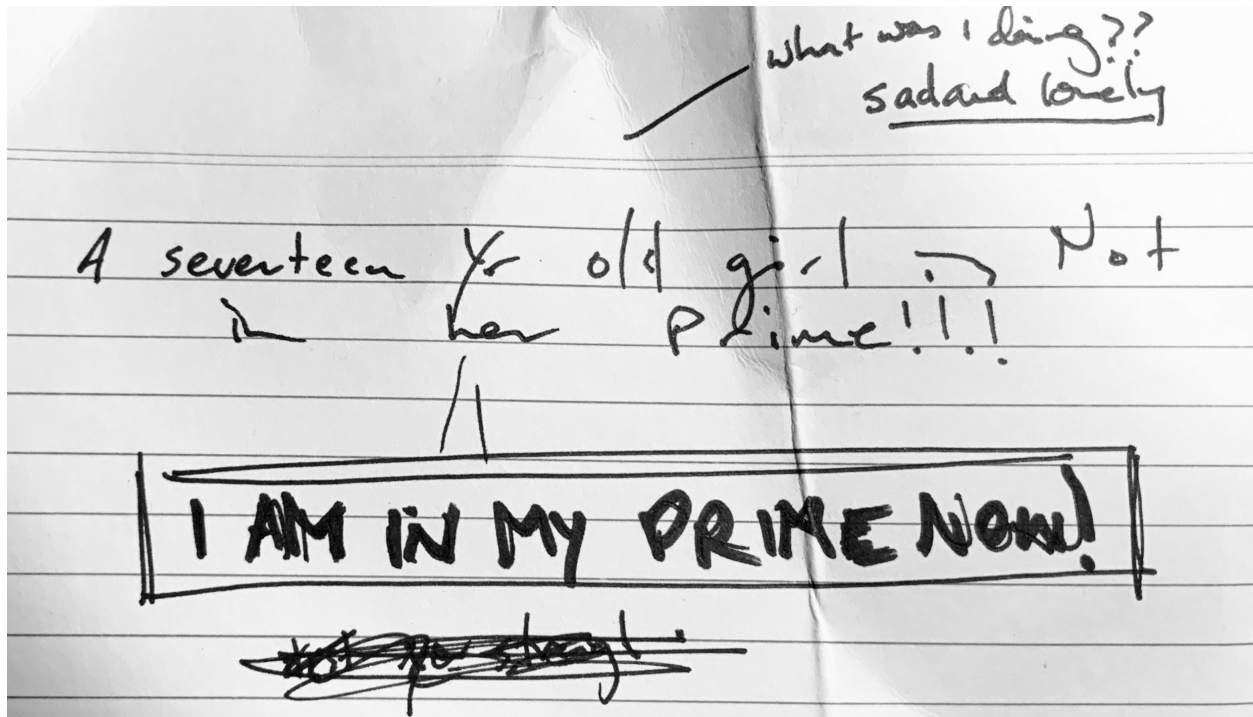 what was I doing??
sad and lonely
A seventeen yr old girl is Not
in her prime!!!
I AM IN MY PRIME NOW!